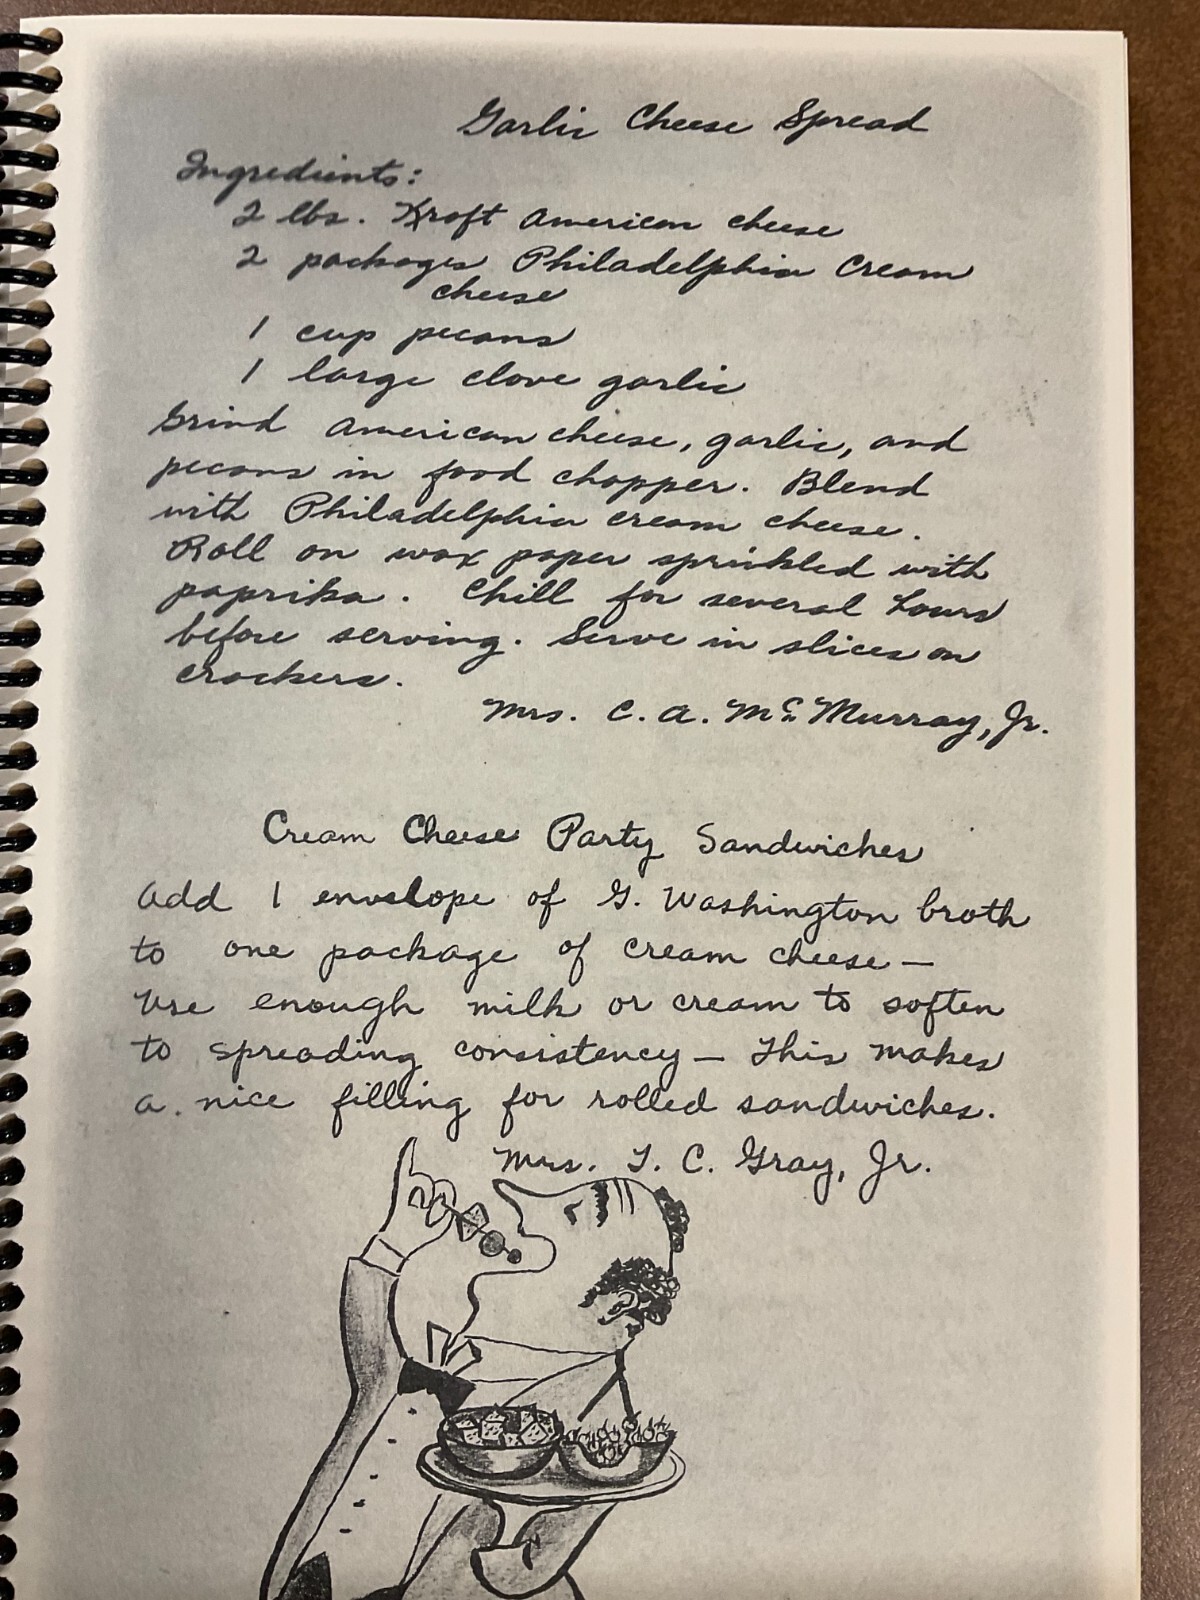 Garlic Cheese Spread
Ingredients:
2 lbs. Kraft American cheese
2 packages Philadelphia Cream
cheese
1 cup pecans
1 large clove garlic
Grind American cheese, garlic, and
pecans in food chopper. Blend
with Philadelphia cream cheese.
Roll on wax paper sprinkled with
paprika. Chill for several hours
before serving. Serve in slices on
crackers.
Mrs. C. A. McMurray, Jr.
Cream Cheese Party Sandwiches
Add 1 envelope of G. Washington broth
to one package of cream cheese —
Use enough milk or cream to soften
to spreading consistency — This makes
a nice filling for rolled sandwiches.
Mrs. T. C. Gray, Jr.